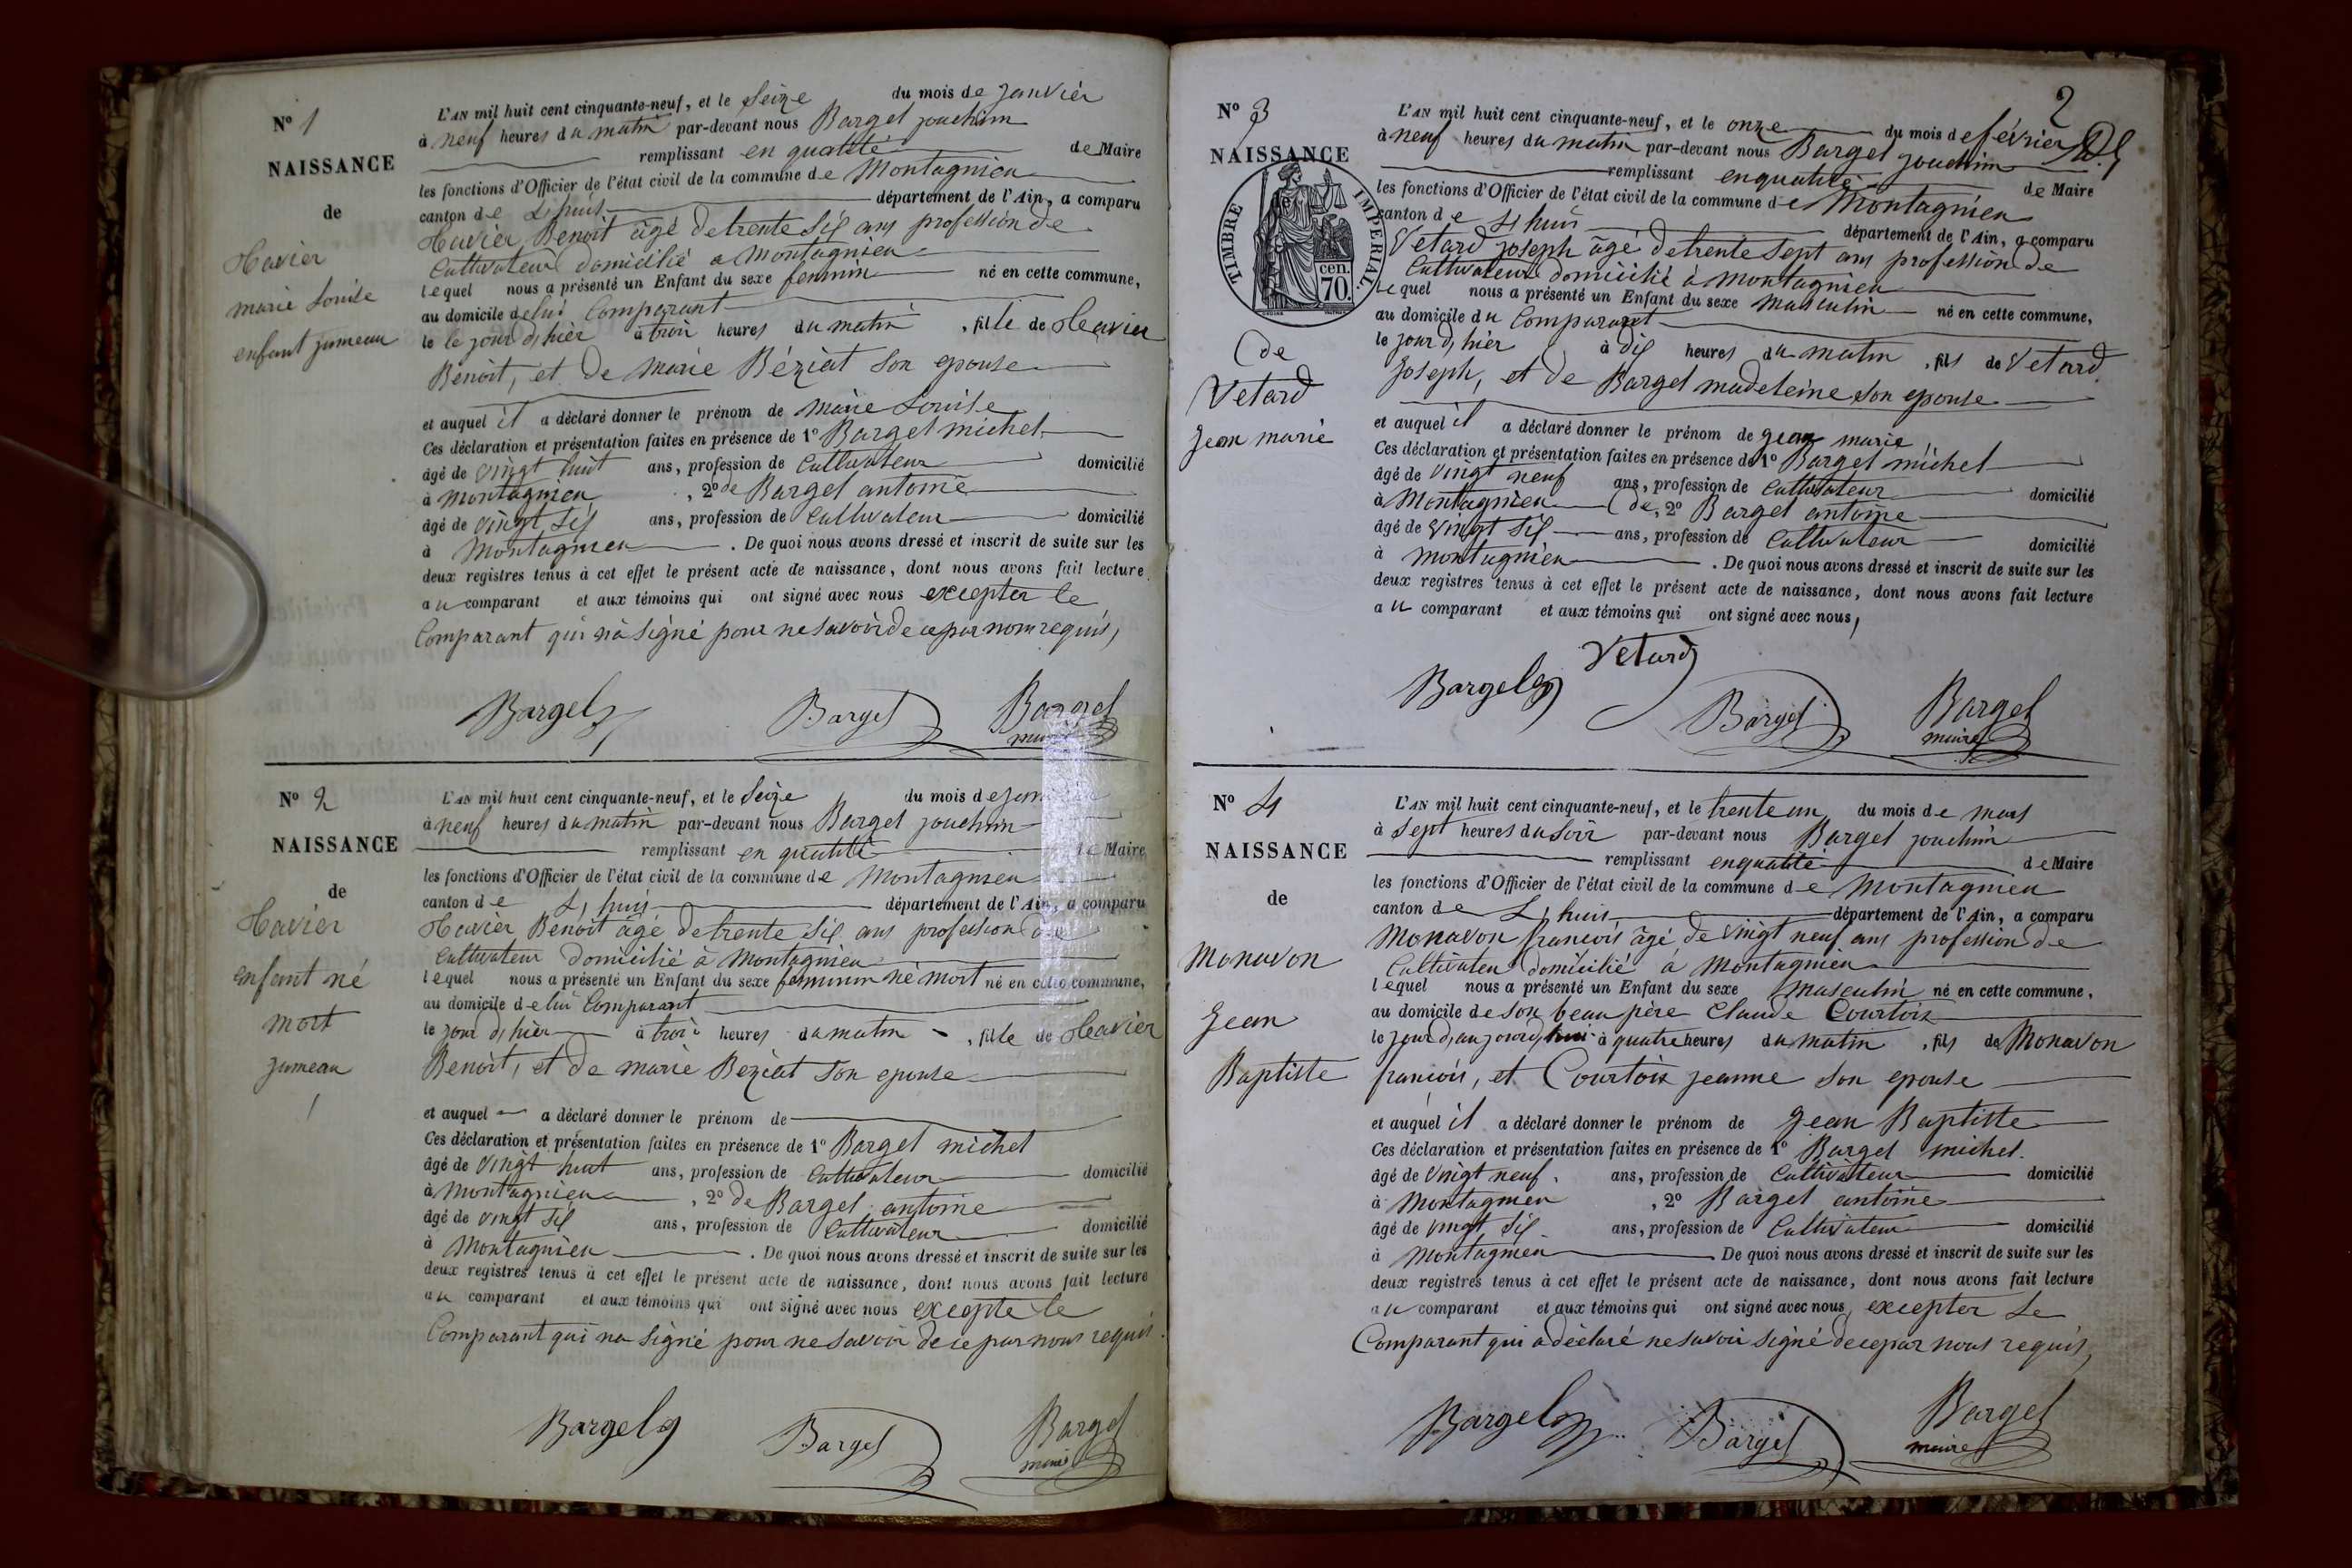 N° 1
NAISSANCE
de
Havier
marie Louise
enfant jumeau
L'AN mil huit cent cinquante-neuf, et le Seize du mois de janvier
à neuf heures du matin par-devant nous Bargel joachim
remplissant en qualité de Maire
les fonctions d'Officier de l'état civil de la commune de Montagnieu
canton de Lhuis département de l'Ain, a comparu
Havier Benoit âgé de trente Six ans profession de
Cultivateur domicilié a Montagnieu
lequel nous a présenté un Enfant du sexe feminin né en cette commune,
au domicile de lui Comparant
le le jour d'hier à trois heures du matin , fille de Havier
Benoit, et de Marie Béziat Son epouse
et auquel il a déclaré donner le prénom de Marie Louise
Ces déclaration et présentation faites en présence de 1° Bargel michel
âgé de vingt huit ans, profession de Cultivateur domicilié
à Montagnieu , 2° de Bargel antoine
âgé de vingt Six ans, profession de Cultivateur domicilié
à Montagnieu . De quoi nous avons dressé et inscrit de suite sur les
deux registres tenus à cet effet le présent acte de naissance, dont nous avons fait lecture
au comparant et aux témoins qui ont signé avec nous excepter le
Comparant qui n'a signé pour ne savoir de ce par nom requis,
Bargel Bargel Bargel
maire
N° 2
NAISSANCE
de
Havier
enfant né
mort
jumeau
L'AN mil huit cent cinquante-neuf, et le Seize du mois de
à neuf heures du matin par-devant nous Bargel joachim
remplissant en qualité de Maire
les fonctions d'Officier de l'état civil de la commune de Montagnieu
canton de Lhuis département de l'Ain, a comparu
Havier Benoit âgé de trente Six ans profession de
Cultivateur domicilié à Montagnieu
lequel nous a présenté un Enfant du sexe feminin né mort né en cette commune,
au domicile de lui Comparant
le jour d'hier à trois heures du matin , fille de Havier
Benoit, et de marie Béziat Son epouse
et auquel a déclaré donner le prénom de
Ces déclaration et présentation faites en présence de 1° Bargel michel
âgé de vingt huit ans, profession de Cultivateur domicilié
à Montagnieu , 2° de Bargel antoine
âgé de vingt Six ans, profession de Cultivateur domicilié
à Montagnieu . De quoi nous avons dressé et inscrit de suite sur les
deux registres tenus à cet effet le présent acte de naissance, dont nous avons fait lecture
au comparant et aux témoins qui ont signé avec nous excepte le
Comparant qui na Signé pour ne savoir de ce par nous requis.
Bargel Bargel Bargel
maire
2
N° 3
NAISSANCE
de
TIMBRE IMPERIAL.
cen.
70.
de
Vetard
Jean marie
L'AN mil huit cent cinquante-neuf, et le onze du mois de février
à neuf heures du matin par-devant nous Bargel joachim
remplissant en qualité de Maire
les fonctions d'Officier de l'état civil de la commune de Montagnieu
canton de Lhuis département de l'Ain, a comparu
Vetard joseph âgé de trente Sept ans profession de
Cultivateur domicilié à Montagnieu
lequel nous a présenté un Enfant du sexe masculin né en cette commune,
au domicile du Comparant
le jour d'hier à dix heures du matin , fils de Vetard
Joseph, et de Bargel madeleine son epouse
et auquel il a déclaré donner le prénom de jean marie
Ces déclaration et présentation faites en présence de 1° Bargel michel
âgé de vingt neuf ans, profession de Cultivateur domicilié
à Montagnieu de, 2° Bargel antoine
âgé de vingt Six ans, profession de Cultivateur domicilié
à Montagnieu . De quoi nous avons dressé et inscrit de suite sur les
deux registres tenus à cet effet le présent acte de naissance, dont nous avons fait lecture
au comparant et aux témoins qui ont signé avec nous,
Vetard
Bargel Bargel Bargel
maire
N° 4
NAISSANCE
de
Monavon
Jean
Baptiste
L'AN mil huit cent cinquante-neuf, et le trente un du mois de mars
à Sept heures du Soir par-devant nous Bargel joachim
remplissant en qualité de Maire
les fonctions d'Officier de l'état civil de la commune de Montagnieu
canton de Lhuis département de l'Ain, a comparu
Monavon francois âgé de vingt neuf ans profession de
Cultivateur domicilié à Montagnieu
lequel nous a présenté un Enfant du sexe masculin né en cette commune,
au domicile de Son beau père Claude Courtois
le jour d'aujourd'hui à quatre heures du matin , fils de Monavon
francois, et Courtois jeanne Son epouse
et auquel il a déclaré donner le prénom de Jean Baptiste
Ces déclaration et présentation faites en présence de 1° Bargel michel.
âgé de vingt neuf ans, profession de Cultivateur domicilié
à Montagnieu , 2° Bargel antoine
âgé de vingt Six ans, profession de Cultivateur domicilié
à Montagnieu De quoi nous avons dressé et inscrit de suite sur les
deux registres tenus à cet effet le présent acte de naissance, dont nous avons fait lecture
au comparant et aux témoins qui ont signé avec nous, excepter le
Comparant qui a déclaré ne savoir signé de ce par nous requis,
Bargel Bargel Bargel
maire